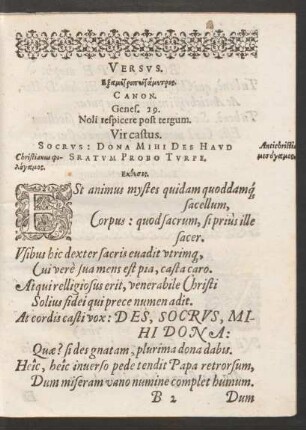 VERSVS.
CANON.
Genes. 29.
Noli respicere post tergum.
Vir castus.
SOCRVS: DONA MIHI DES HAVD
SRATVM PROBO TVRPE.
Christianus φι-
λόγαμος.
Antichristus
μισόγαμος.
Εκθεσις.
Est animus mystes quidam quoddamq́
sacellum,
Corpus: quod sacrum, si prius ille
sacer.
Vsibus hic dexter sacris euadit vtrimq,
Cui verè sua mens est pia, casta caro.
Atqui relligiosus erit, venerabile Christi
Solius fidei qui prece numen adit.
At cordis casti vox: DES, SOCRVS, MI-
HI DONA:
Quæ? si des gnatam, plurima dona dabis.
Heîc, heîc inuerso pede tendit Papa retrorsum,
Dum miseram vano numine complet humum.
B 2 Dum